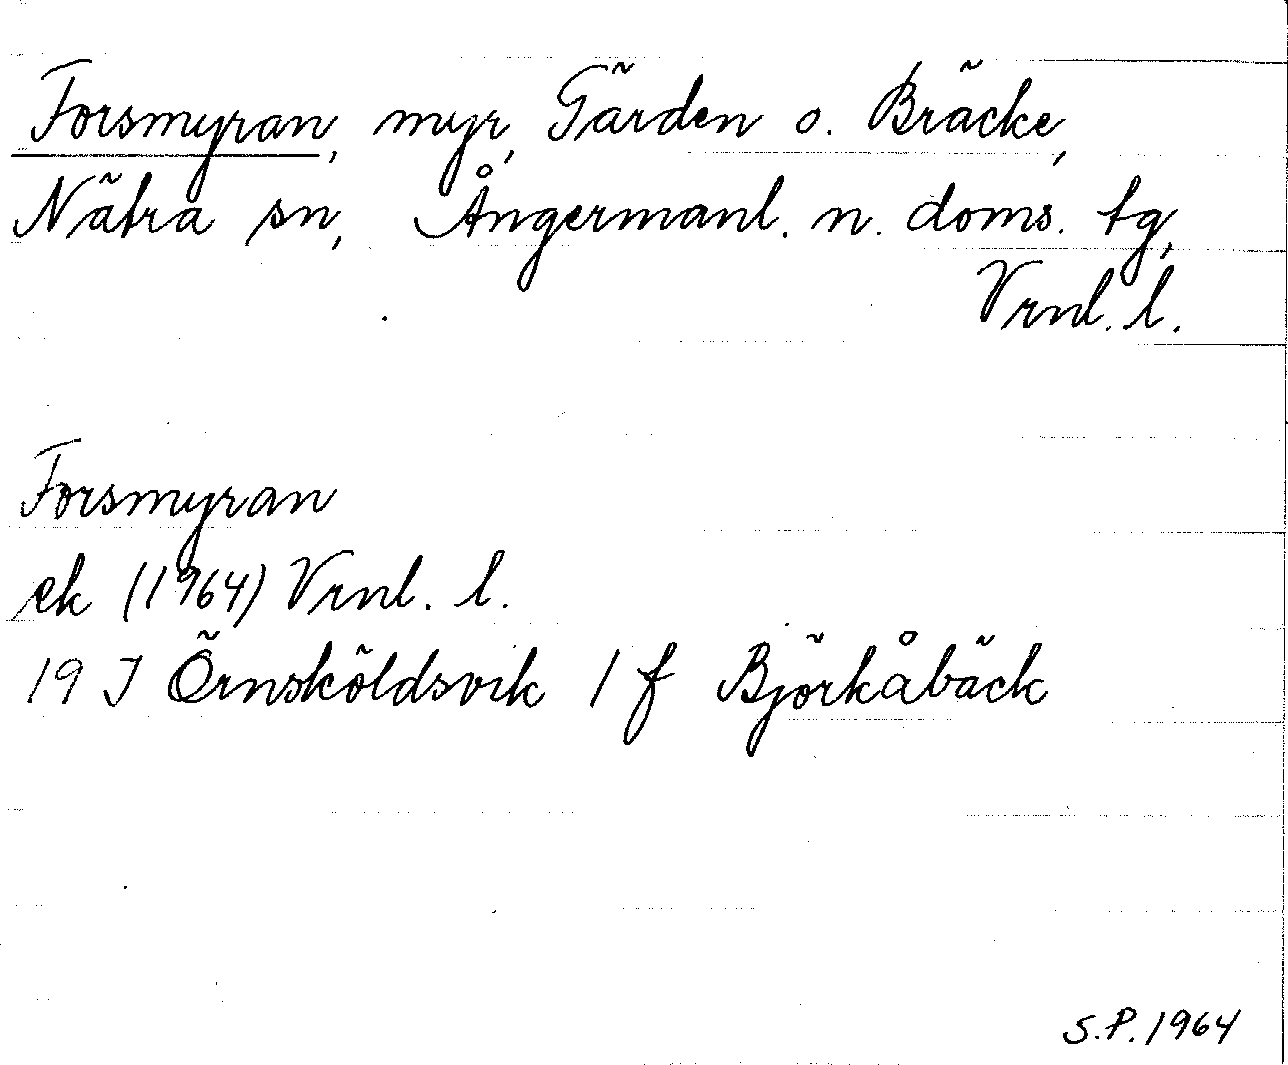 Forsmyran, myr, Gärden o. Bräcke,
Nätra sn, Ångermanl. n. doms. tg,
Vrnl. l.
Forsmyran
ek (1964) Vrnl. l.
19 I Örnsköldsvik 1 f Björkåbäck
S.P. 1964